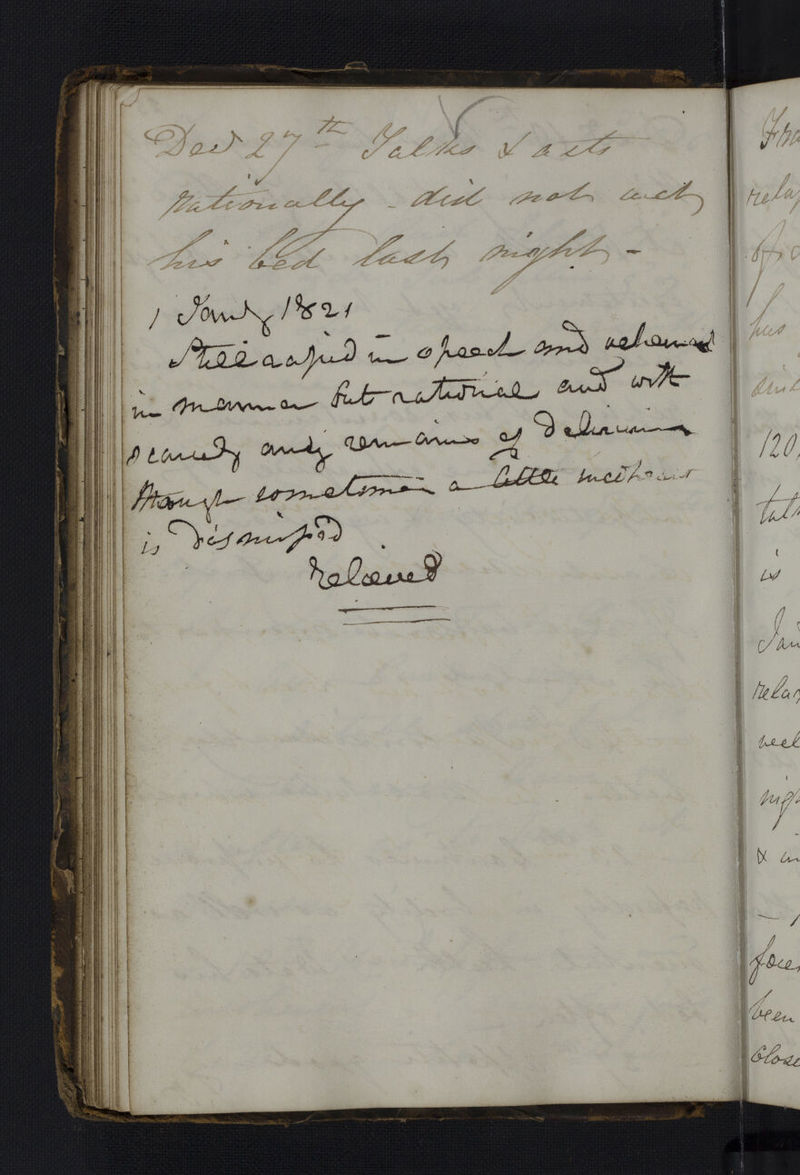 Decr 27th Talks & acts
rationally - did not wet
his bed last night -
1 Jany 1821
Still rapid in speech and vehement
in manner but rational and with
scarcely any remains of delirium
though sometimes a little incoherent
is dismissed
Relieved
Fra
rela
of
has
120
tal
is
Jan
rela
well
nig
& in
been
close